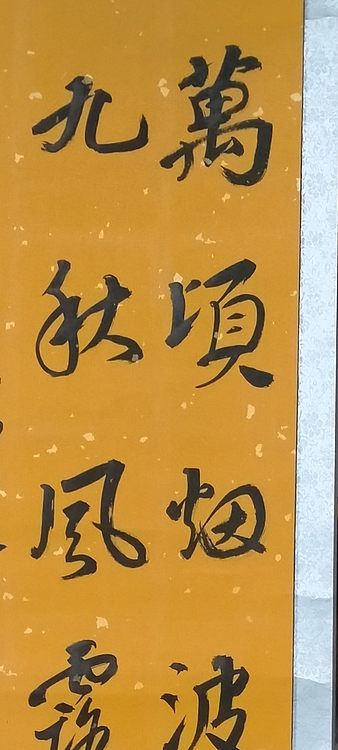 萬頃烟波
九秋風露